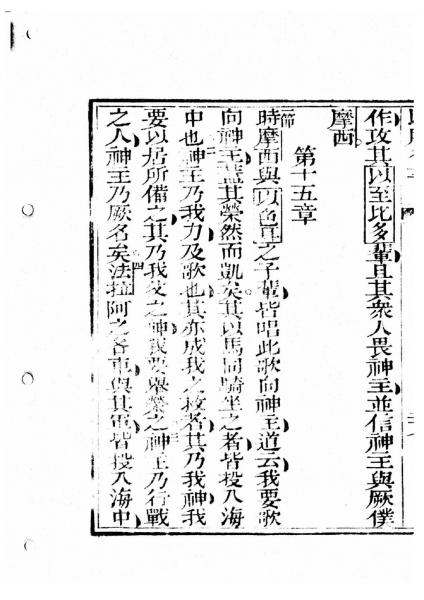 作攻其以至比多輩且其衆人畏神主並信神主與厥僕
摩西
第十五章
一節
時摩西與以色耳之子輩皆唱此歌向神主道云我要歌
向神主蓋其榮然而凱矣其以馬同騎坐之者皆投入海
中也神主乃我力及歌也其亦成我之救者其乃我神我
要以居所備之其乃我父之神我要舉榮之神主乃行戰
之人神主乃厥名矣法拉阿之各車與其軍皆投入海中